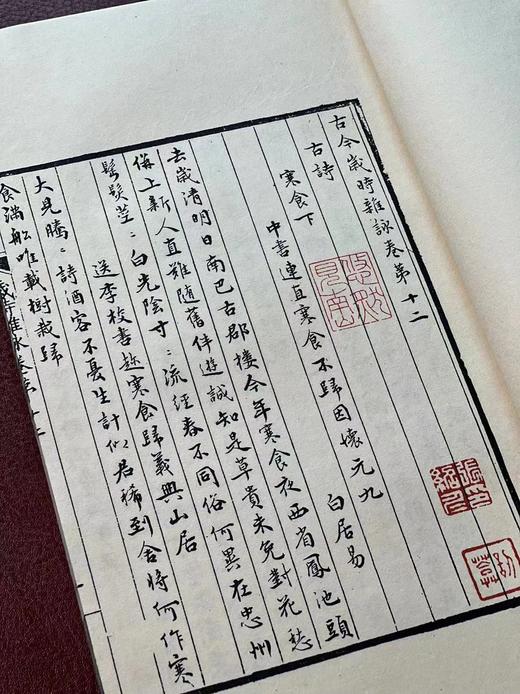 古今歲時雜詠卷第十二
古詩
寒食下
中書連直寒食不歸因懷元九
白居易
去歲清明日南巴古郡樓今年寒食夜西省鳳池頭
併上新人直難隨舊伴遊誠知是草貴未免對花愁
鬢髮莖:白光陰寸:流經春不同俗何異在忠州
送李校書趂寒食歸義興山居
大見騰:詩酒客不憂生計似君稀到舍將何作寒
食滿船唯載樹栽歸
張印紹仁
訒菴